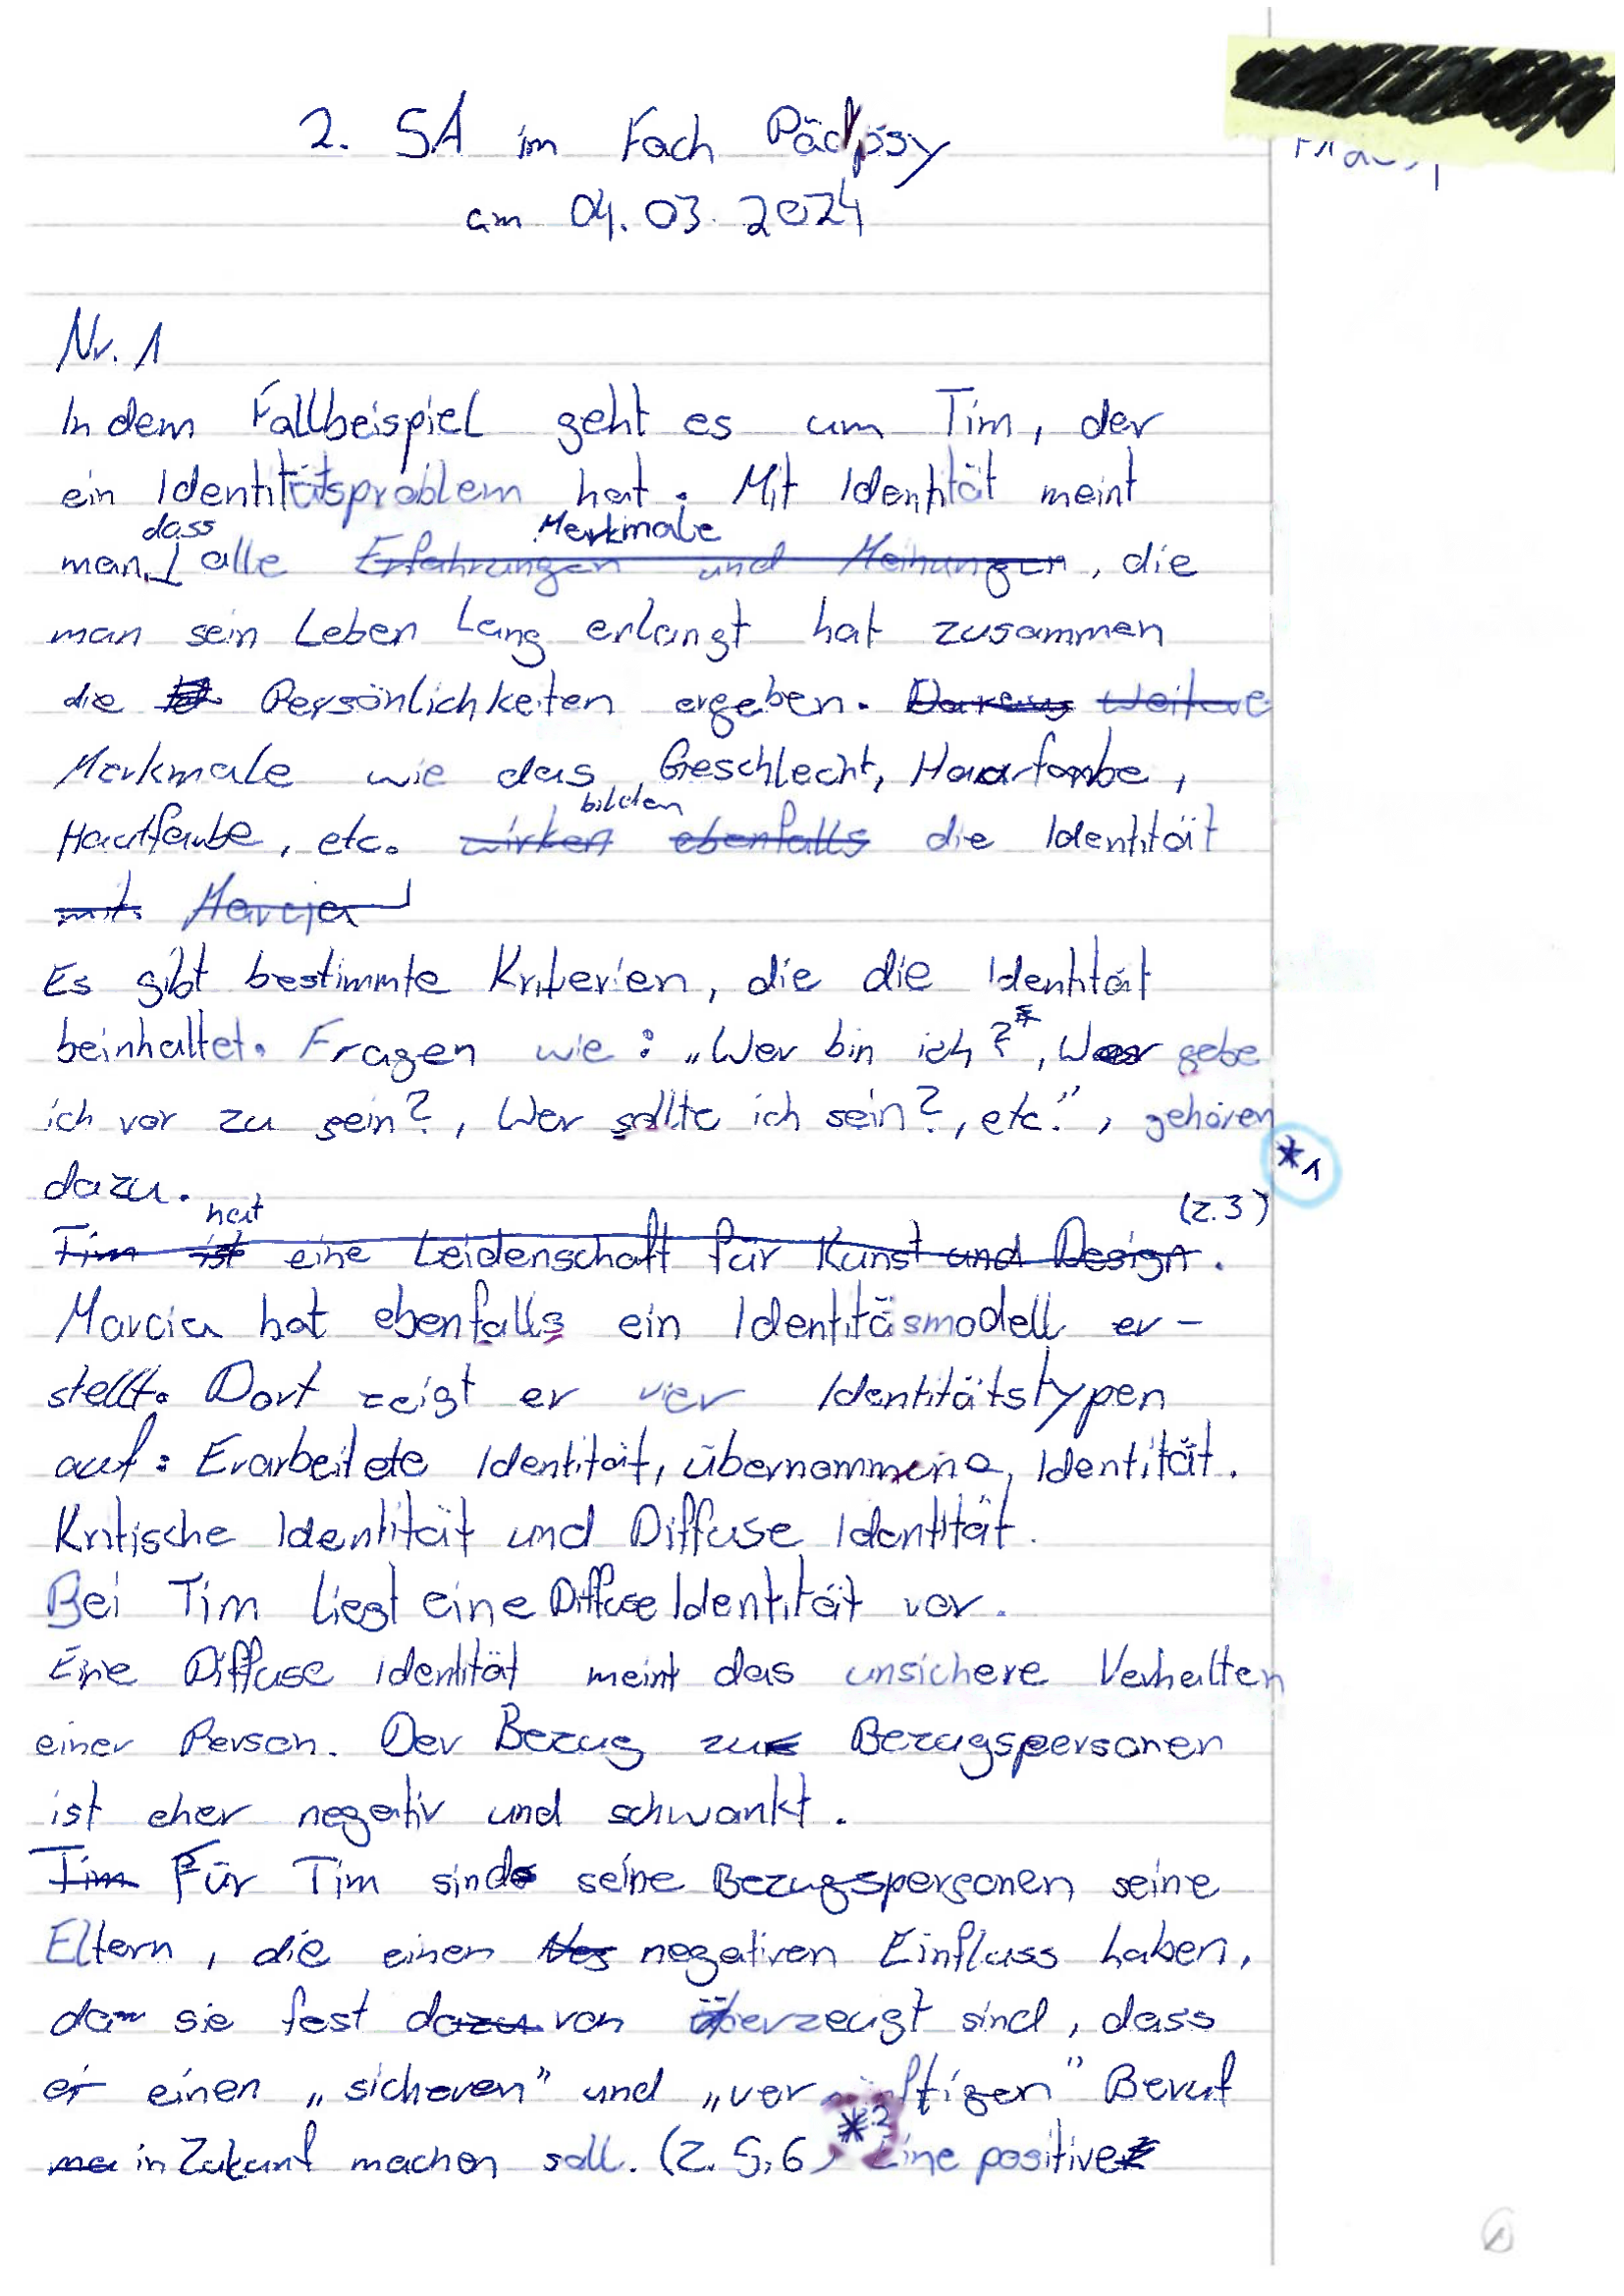 2. SA im Fach Pädpsy
am 04.03.2024
Nr. 1
In dem Fallbeispiel geht es um Tim, der
ein Identitätsproblem hat. Mit Identität meint
man, dass alle Erfahrungen und Meinungen Merkmale, die
man sein Leben Lang erlangt hat zusammen
die Persönlichkeiten ergeben. Daraus weitere
Merkmale wie das Geschlecht, Haarfarbe,
Hautfarbe, etc. wirken ebenfalls bilden die Identität
mit. Marcia
Es gibt bestimmte Kriterien, die die Identität
beinhaltet. Fragen wie: „Wer bin ich?, Wer gebe
ich vor zu sein?, Wer sollte ich sein?, etc.", gehören
dazu. *1
Tim ist hat eine Leidenschaft für Kunst und Design. (Z.3)
Marcia hat ebenfalls ein Identitäsmodell er-
stellt. Dort zeigt er vier Identitätstypen
auf: Erarbeitete Identität, übernommene Identität.
Kritische Identität und Diffuse Identität.
Bei Tim liegt eine Diffuse Identität vor.
Eine Diffuse Identität meint das unsichere Verhalten
einer Person. Der Bezug zur Bezugspersonen
ist eher negativ und schwankt.
Tim Für Tim sind seine Bezugspersonen seine
Eltern, die einen negativen Einfluss haben,
da sie fest dazu von überzeugt sind, dass
er einen „sicheren" und „vernünftigen" Beruf
in Zukunf machen soll. (Z. 5,6) *2 Eine positive
1